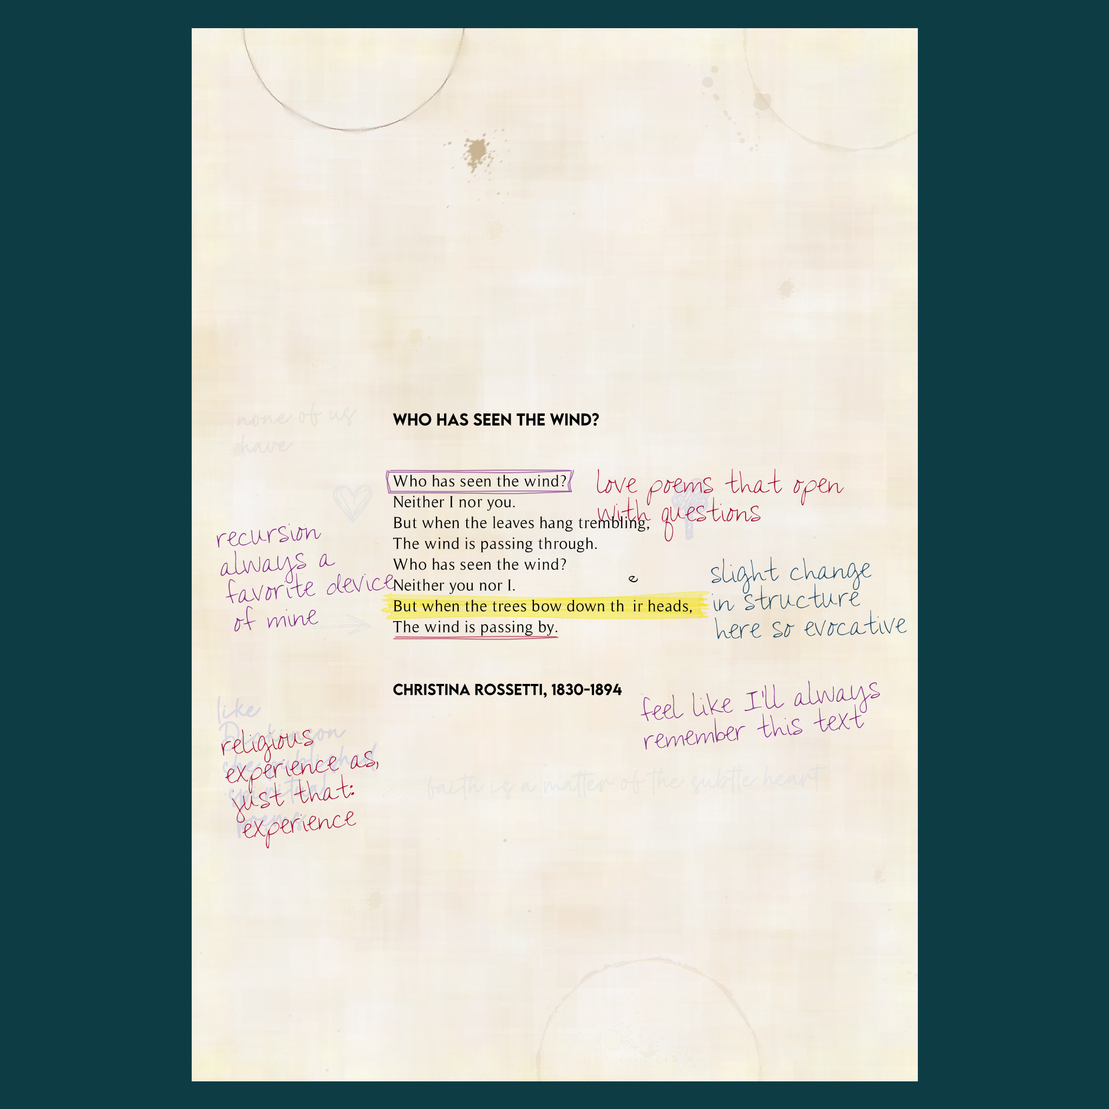 none of us
have
WHO HAS SEEN THE WIND?
Who has seen the wind?
Neither I nor you.
But when the leaves hang trembling,
The wind is passing through.
Who has seen the wind?
Neither you nor I.
e
But when the trees bow down th ir heads,
The wind is passing by.
love poems that open
with questions
recursion
always a
favorite device
of mine
slight change
in structure
here so evocative
CHRISTINA ROSSETTI, 1830-1894
feel like I'll always
remember this text
like
Dickinson
she published
religious
experience as,
just that:
experience
faith is a matter of the subtle heart